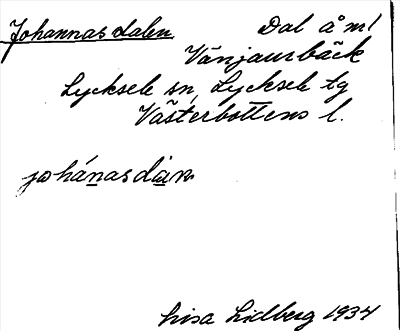 Johannasdalen Dal å m/
Vänjaurbäck
Lycksele sn, Lycksele tg
Västerbottens l.
johánasdạn
Lisa Lidberg 1934